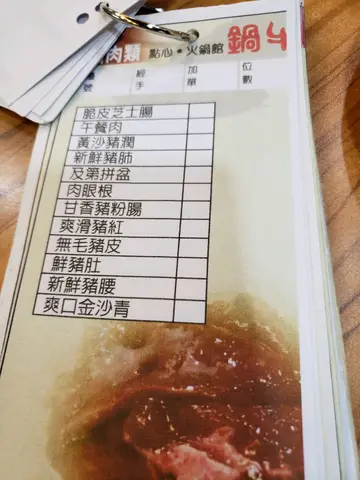 肉類 點心・火鍋館 鍋
號 經手 加單 位數
脆皮芝士腸
午餐肉
黃沙豬潤
新鮮豬肺
及第拼盆
肉眼根
甘香豬粉腸
爽滑豬紅
無毛豬皮
鮮豬肚
新鮮豬腰
爽口金沙青